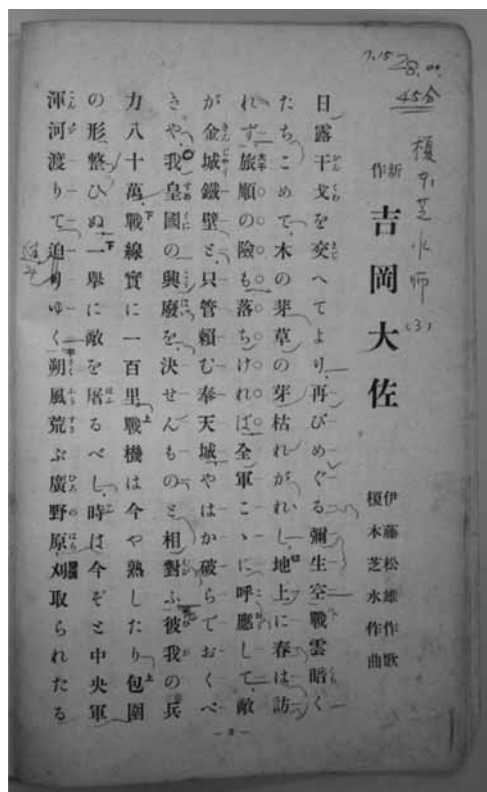 7.15
28.00
45分
榎本芝水師(3)
新作 吉岡大佐
伊藤松雄作歌
榎本芝水作曲
日露干戈を交へてより再びめぐる彌生空戰雲暗く
たちこめて木の芽草の芽枯れがれし地上に春は訪
れず旅順の險も落ちければ全軍こゝに呼應して敵
が金城鐵壁と只管賴む奉天城やはか破らでおくべ
きや我皇國の興廢を決せんものと相對ふ彼我の兵
力八十萬戰線實に一百里戰機は今や熟したり包圍
の形整ひぬ一擧に敵を屠るべし時は今ぞと中央軍
渾河渡りて迫りゆく朔風荒ぶ廣野原刈取られたる